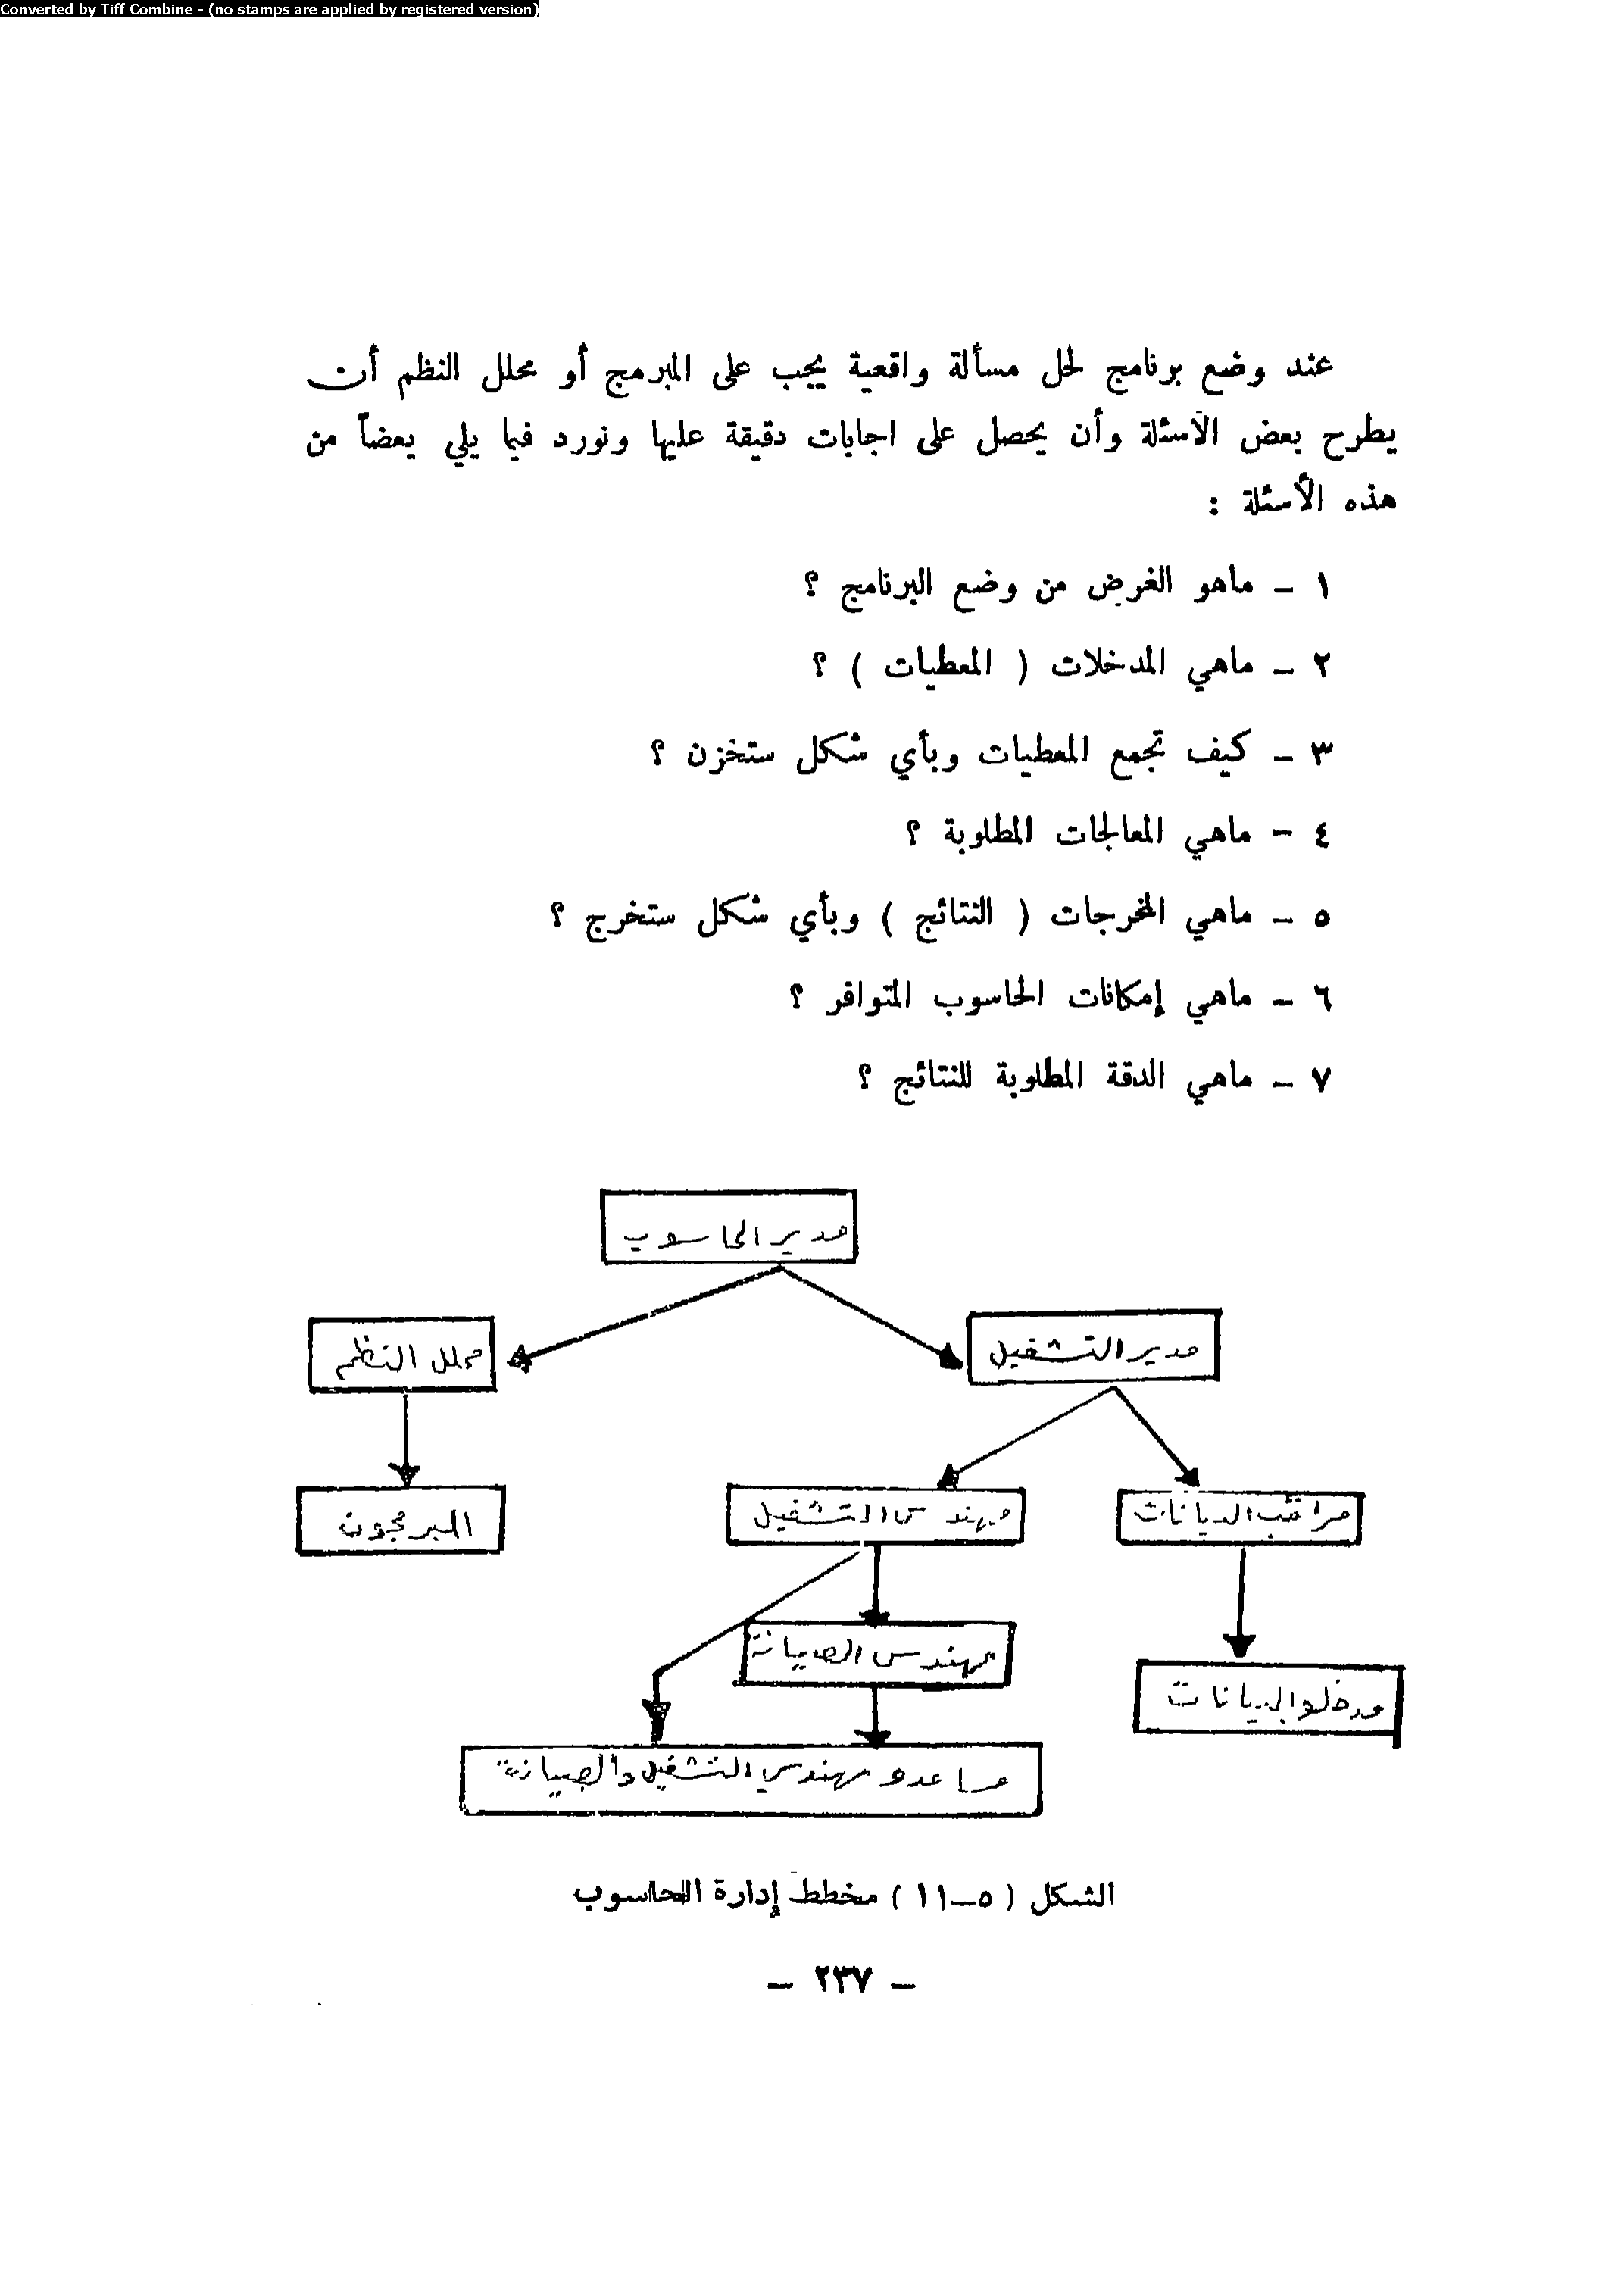 Converted by Tiff Combine - (no stamps are applied by registered version)
عند وضع برنامج لحل مسألة واقعية يجب على المبرمج أو محلل النظم أن
يطرح بعض الأسئلة وأن يحصل على اجابات دقيقة عليها ونورد فيما يلي بعضاً من
هذه الأسئلة :
١ - ماهو الغرض من وضع البرنامج ؟
٢ - ماهي المدخلات ( المعطيات ) ؟
٣ - كيف تجمع المعطيات وبأي شكل ستخزن ؟
٤ - ماهي المعالجات المطلوبة ؟
٥ - ماهي المخرجات ( النتائج ) وبأي شكل ستخرج ؟
٦ - ماهي إمكانات الحاسوب المتوافر ؟
٧ - ماهي الدقة المطلوبة للنتائج ؟
مدير الحاسوب
مدير التشغيل
محلل النظم
مراقب البيانات
مهندس التشغيل
المبرمجون
مهندس الصيانة
مدخلو البيانات
مساعدو مهندسي التشغيل والصيانة
الشكل ( ٥-١١ ) مخطط إدارة الحاسوب
- ٢٣٧ -